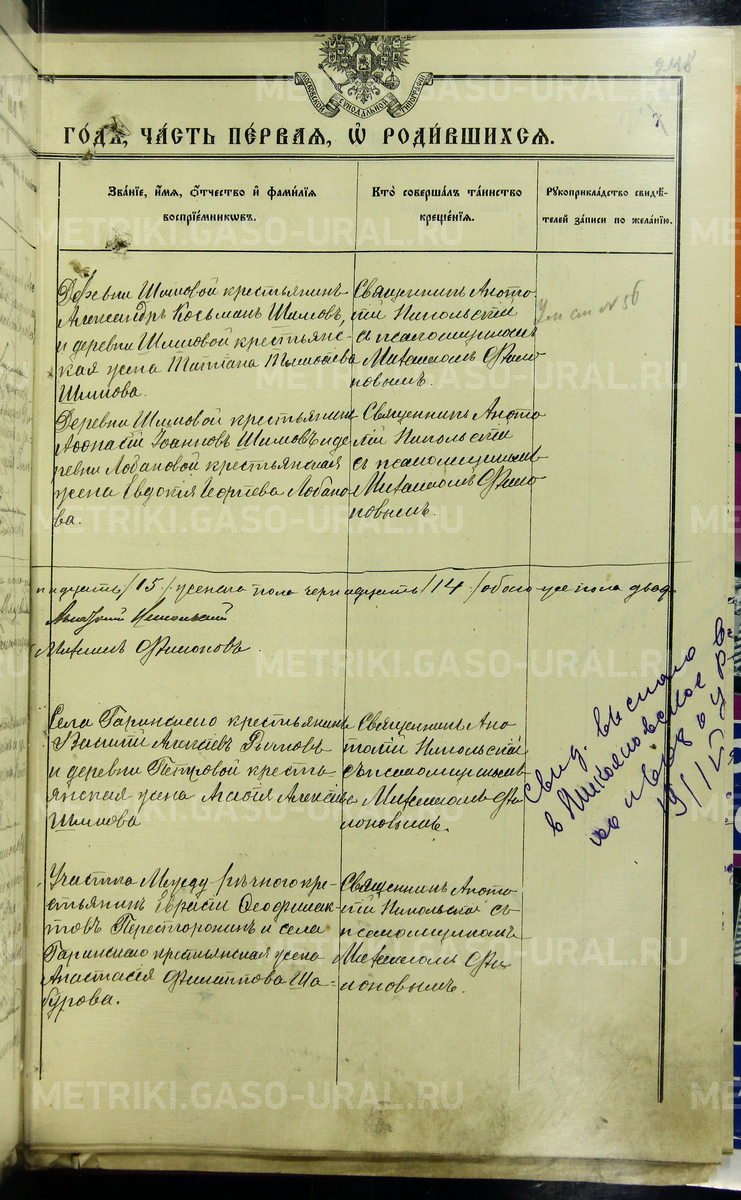 248
МОСКОВСКОЙ СѴНОДАЛЬНОЙ ТИПОГРАФІИ
ГО́ДА, ЧА́СТЬ ПЕ́РВАЯ, Ѡ҆ РОДИ́ВШИХСЯ.
Зва́нїе, и҆́мя, ѻ҆́тчество и҆ фами́лїя
воспрїе́мникѡвъ.
Кто̀ соверша́лъ та́инство
креще́нїя.
Рꙋкоприкла́дство свидѣ́-
телей за́писи по жела́нїю.
Деревни Шимовой крестьянинъ
Александръ Косьминъ Шимовъ,
и деревни Шимовой крестьянс-
кая жена Татіана Тимоѳеева
Шимова.
Священникъ Анато-
лій Никольскій
съ псаломщикомъ
Михаиломъ Филимо-
новымъ.
№ 56
Деревни Шимовой крестьянинъ
Аѳонасій Іоанновъ Шимовъ и де-
ревни Лобановой крестьянская
жена Евдокія Георгіева Лобано-
ва.
Священникъ Анато-
лій Никольскій
съ псаломщикомъ
Михаиломъ Филимо-
новымъ.
надцать /15/, женскаго пола четырнадцать /14/, обоего же пола двад-
Анатолій Никольскій
Михаилъ Филимоновъ.
Села Гаринскаго крестьянинъ
Василій Алексѣевъ Рычковъ
и деревни Петровой кресть-
янская жена Агаѳія Алексѣева
Шимова
Священникъ Ана-
толій Никольскій
съ псаломщикомъ
Михаиломъ Фи-
лимоновымъ.
Свид. выслано
в
19
Участка Между-рѣчнаго кре-
стьянинъ Евграфъ Ѳеофилак-
товъ Перестороникъ и села
Гаринскаго крестьянская жена
Анастасія Филиппова Ша-
бурова.
Священникъ Анато-
лій Никольскій съ
псаломщикомъ
Михаиломъ Фи-
лимоновымъ.
METRIKI.GASO-URAL.RU